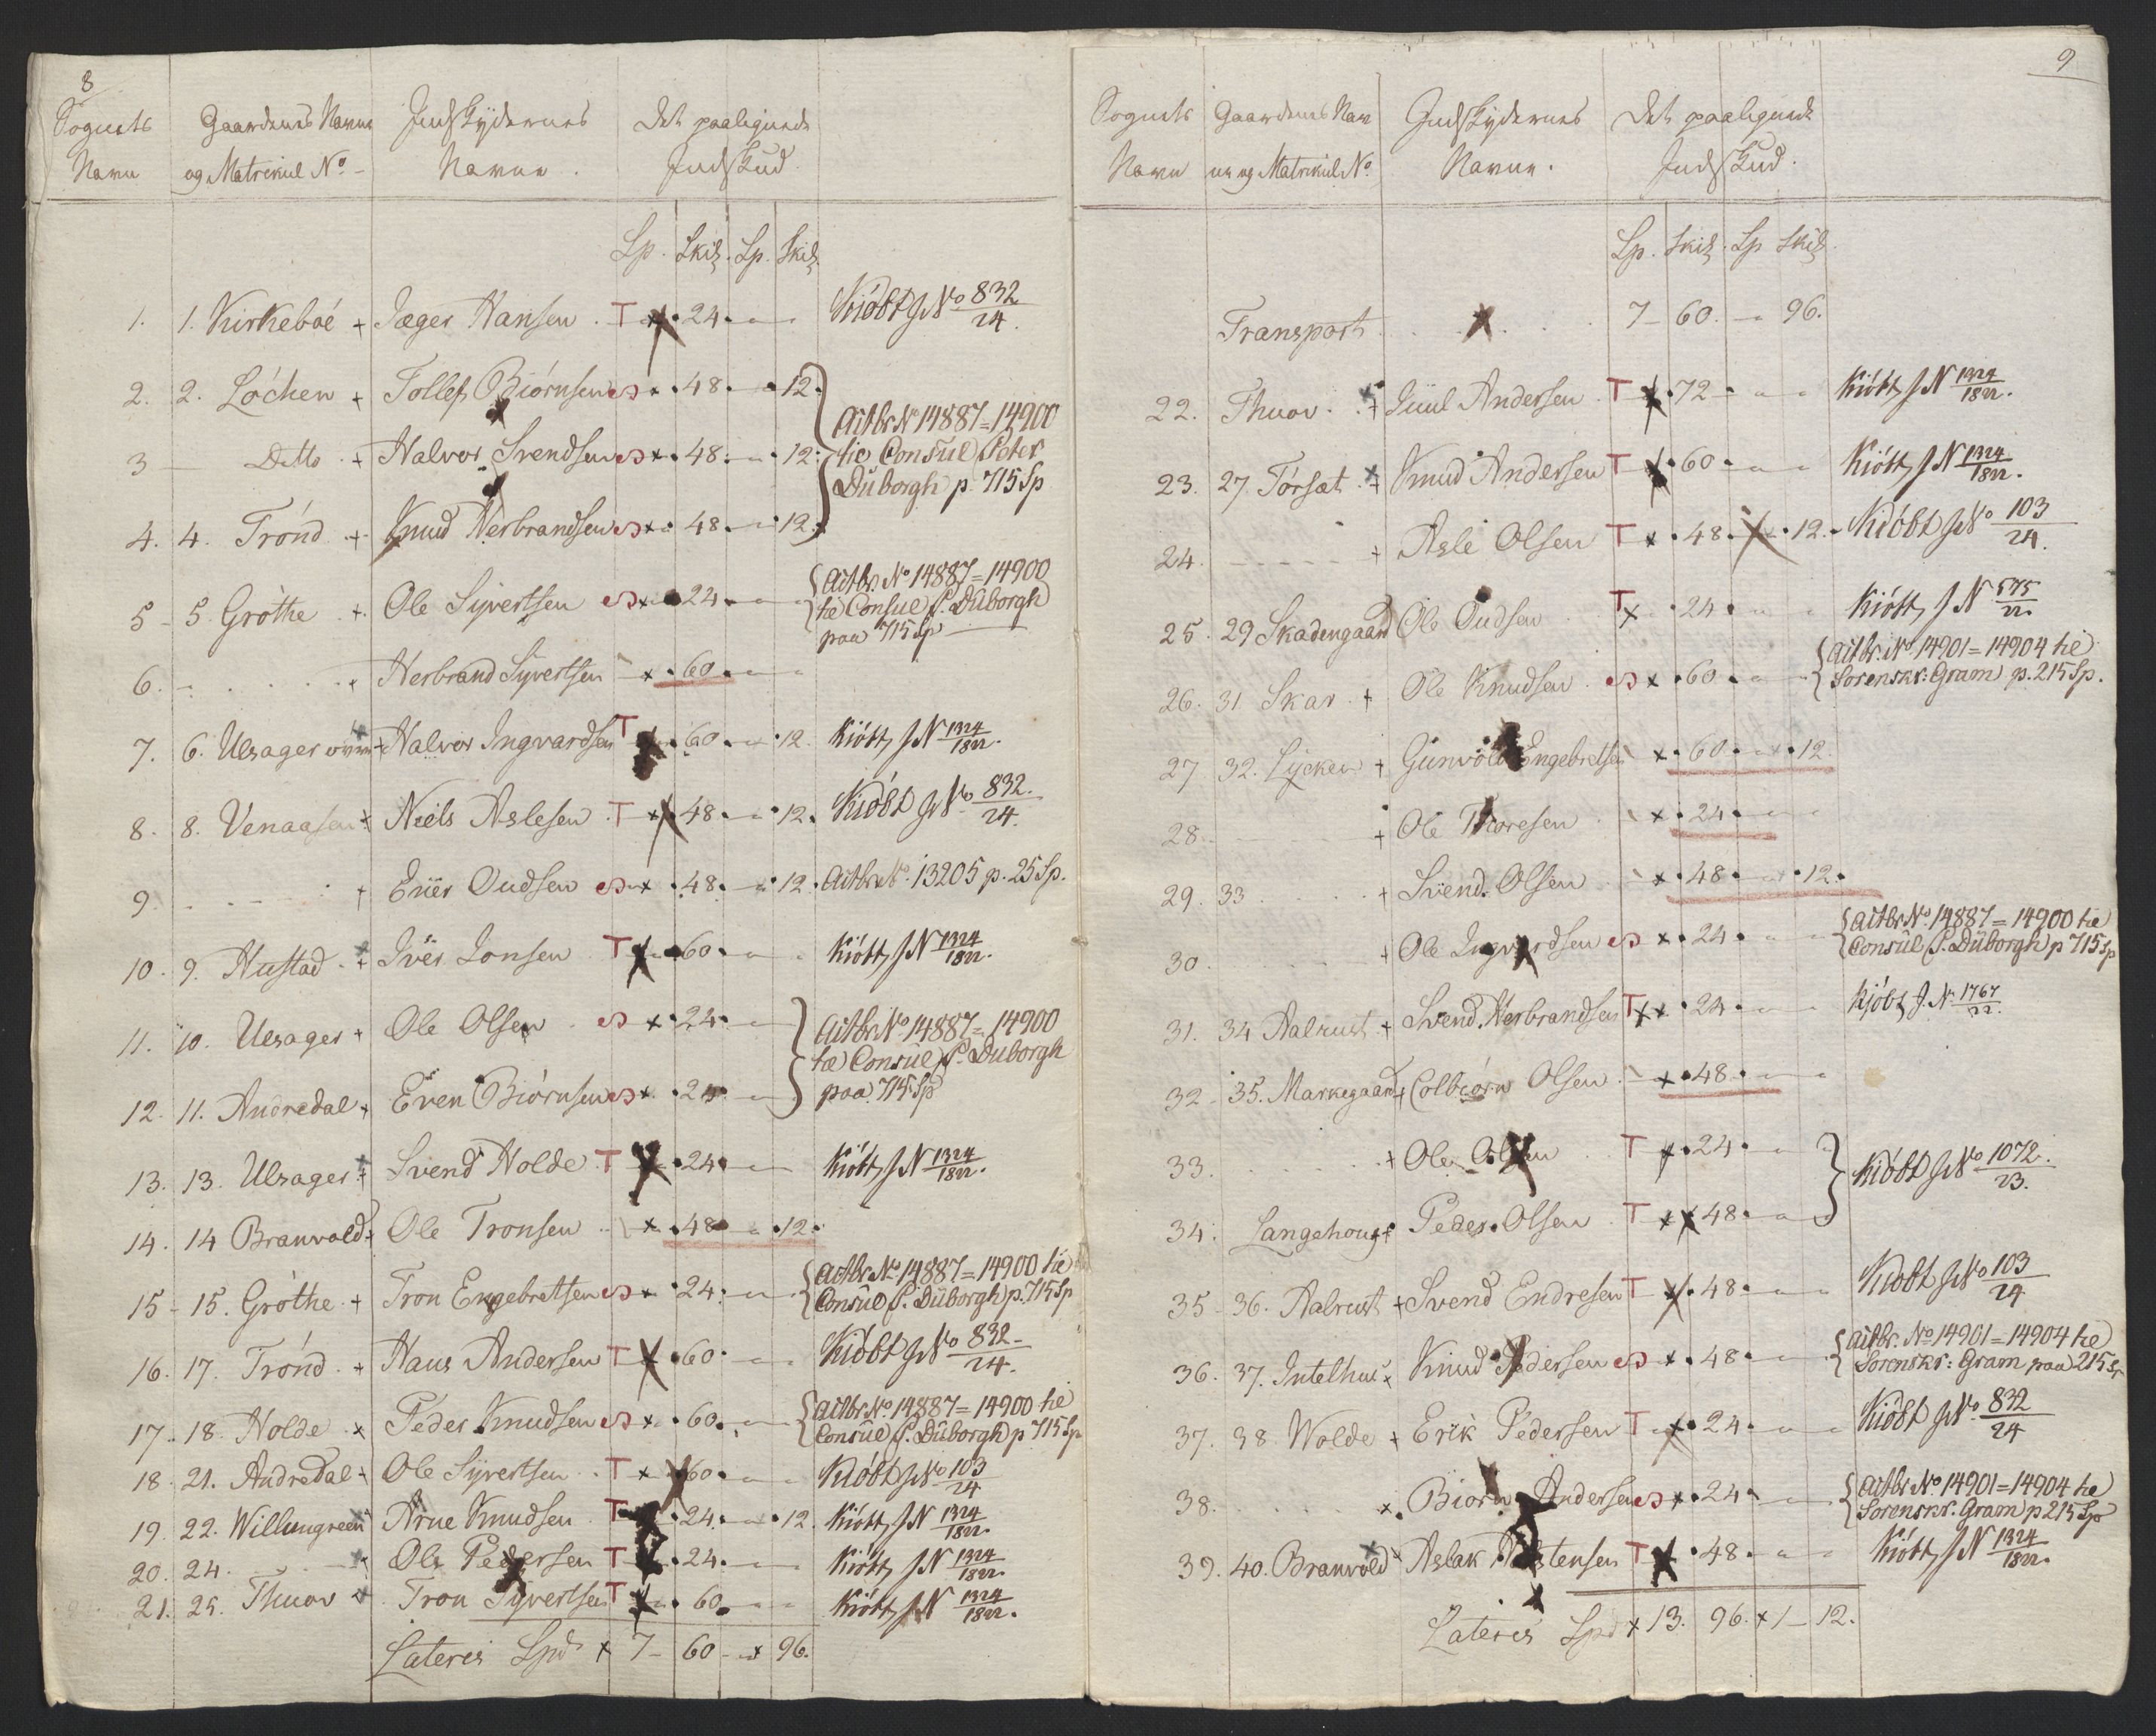 8
Sognets Gaardenes Navne Indskydernes Det paalignede
Navn og Matrikul No Navne. Indskud.
Sp. Skil. Sp. Skil.
1. 1. Kirkeboé + Jæger Hansen. T x 24. Kióbt J No 832/24.
2. 2. Lóchen + Tollef Biórnsen x 48. 12.
3 Ditto + Halvor Svendsen x 48. 12.
Actbr No 14887=14900
tie Consul Peter
Düborgh p. 715 Sp
4. 4. Trónd + Knud Herbrandsen x 48. 12.
5 5. Gróthe + Ole Syvertsen 24.
Actbr. No 14887=14900
tie Consul P. Düborgh
paa 715 Sp
6. Herbrand Syvertsen x 60.
7. 6. Ulsager óvre + Halvor Ingvardsen T 60. 12. Kióbt J N 1324/1822.
8. 8. Venaasen + Niels Aslesen. T x 48. 12. Kióbt J No 832/24.
9. + Euer Oudsen x 48. 12. Actbr No 13205 p. 25 Sp.
10. 9. Hustad + Iver Jonsen T x 60. Kióbt J N 1324/1822.
11. 10. Ulsager + Ole Olsen x 24.
Actbr No 14887=14900
tie Consul P. Düborgh
paa 715 Sp
12. 11. Andredal + Even Biórnsen x 24.
13. 13. Ulsager + Svend Holde T x 24. Kióbt J N 1324/1822.
14. 14 Branvold + Ole Tronsen x 48. 12.
15 15. Gróthe + Tron Engebretsen x 24.
Actbr No 14887=14900 tie
Consul P. Düborgh p. 715 Sp
16. 17. Trónd + Hans Andersen T x 60. Kióbt J No 832/24.
17. 18. Holde x Peder Knudsen x 60.
Actbr No 14887=14900 tie
Consul P. Düborgh p 715 Sp
18. 21. Andredal + Ole Syvertsen T x 60. Kióbt J No 103/24
19. 22. Willungreen Arne Knudsen T 24. 12. Kióbt J N 1324/1822.
20. 24. Ole Pedersen T 24. Kióbt J N 1324/1822.
21. 25. Thuov + Tron Syvertsen T 60. Kióbt J N 1324/1822.
Lateris Spd x 7 60 x 96.
9
Sognets Gaardenes Nav Indskydernes Det paalignede
Navn ne og Matrikul No Navne. Indskud.
Sp. Skil. Sp Skil.
Transport 7 60. 96.
22. Thuov + Juul Andersen T x 72 Kióbt J N 1324/1822.
23. 27 Tórsæt + Knud Andersen T x 60. Kióbt J N 1324/1822.
24. + Asle Olsen T x 48. x 12. Kióbt J No 103/24.
25. 29 Skadengaard Ole Oudsen T x 24. Kióbt J N 575/22.
26. 31 Skar + Ole Knudsen x 60.
Actbr. No 14901=14904 tie
Sorenskr: Gram p. 215 Sp.
27 32. Lycken + Gunvold Engebretsen x 60. 12.
28. + Ole Thoresen x 24.
29. 33 + Svend Olsen x 48. 12.
30. + Ole Ingvardsen x 24.
Actbr No 14887=14900 tie
Consul P. Düborgh p 715 Sp
31. 34 Aalrust + Svend Herbrandsen T x 24. Kjóbt J. N. 1767/22.
32 35. Markegaard + Colbiórn Olsen x 48.
33. + Ole Olsen T x 24.
Kióbt J No 1072/23.
34. Langehoug + Peder Olsen T x 48.
35 36. Aalrust + Svend Endresen T x 48. Kióbt J No 103/24
36. 37. Intelhus x Knud Pedersen x 48.
Actbr. No 14901=14904 tie
Sorenskr: Gram paa 215 Sp
37. 38. Wolde + Erik Pedersen T x 24. Kióbt J No. 832/24
38. x Biórn Andersen x 24.
Actbr No 14901=14904 tie
Sorenskr. Gram p 215 Sp
39. 40. Branvold Aslak Torstensen T x 48. Kióbt J N 1324/1822.
Lateris Spd x 13. 96. x 1 12.